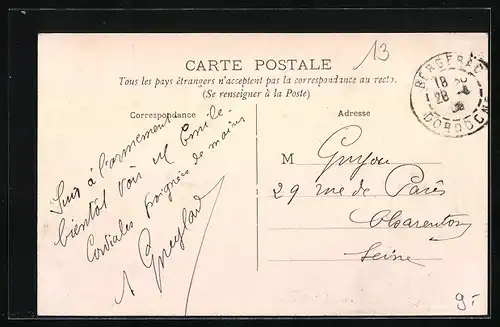 13
CARTE POSTALE
Tous les pays étrangers n'acceptent pas la correspondance au recto.
(Se renseigner à la Poste)
Correspondance
Adresse
BERGERAC
18
28
DORDOGNE
Suis à l'armement
bientôt voir M Emile.
Cordiales poignées de mains
M Guyou
29 rue de Paris
Charenton
Seine
9.-